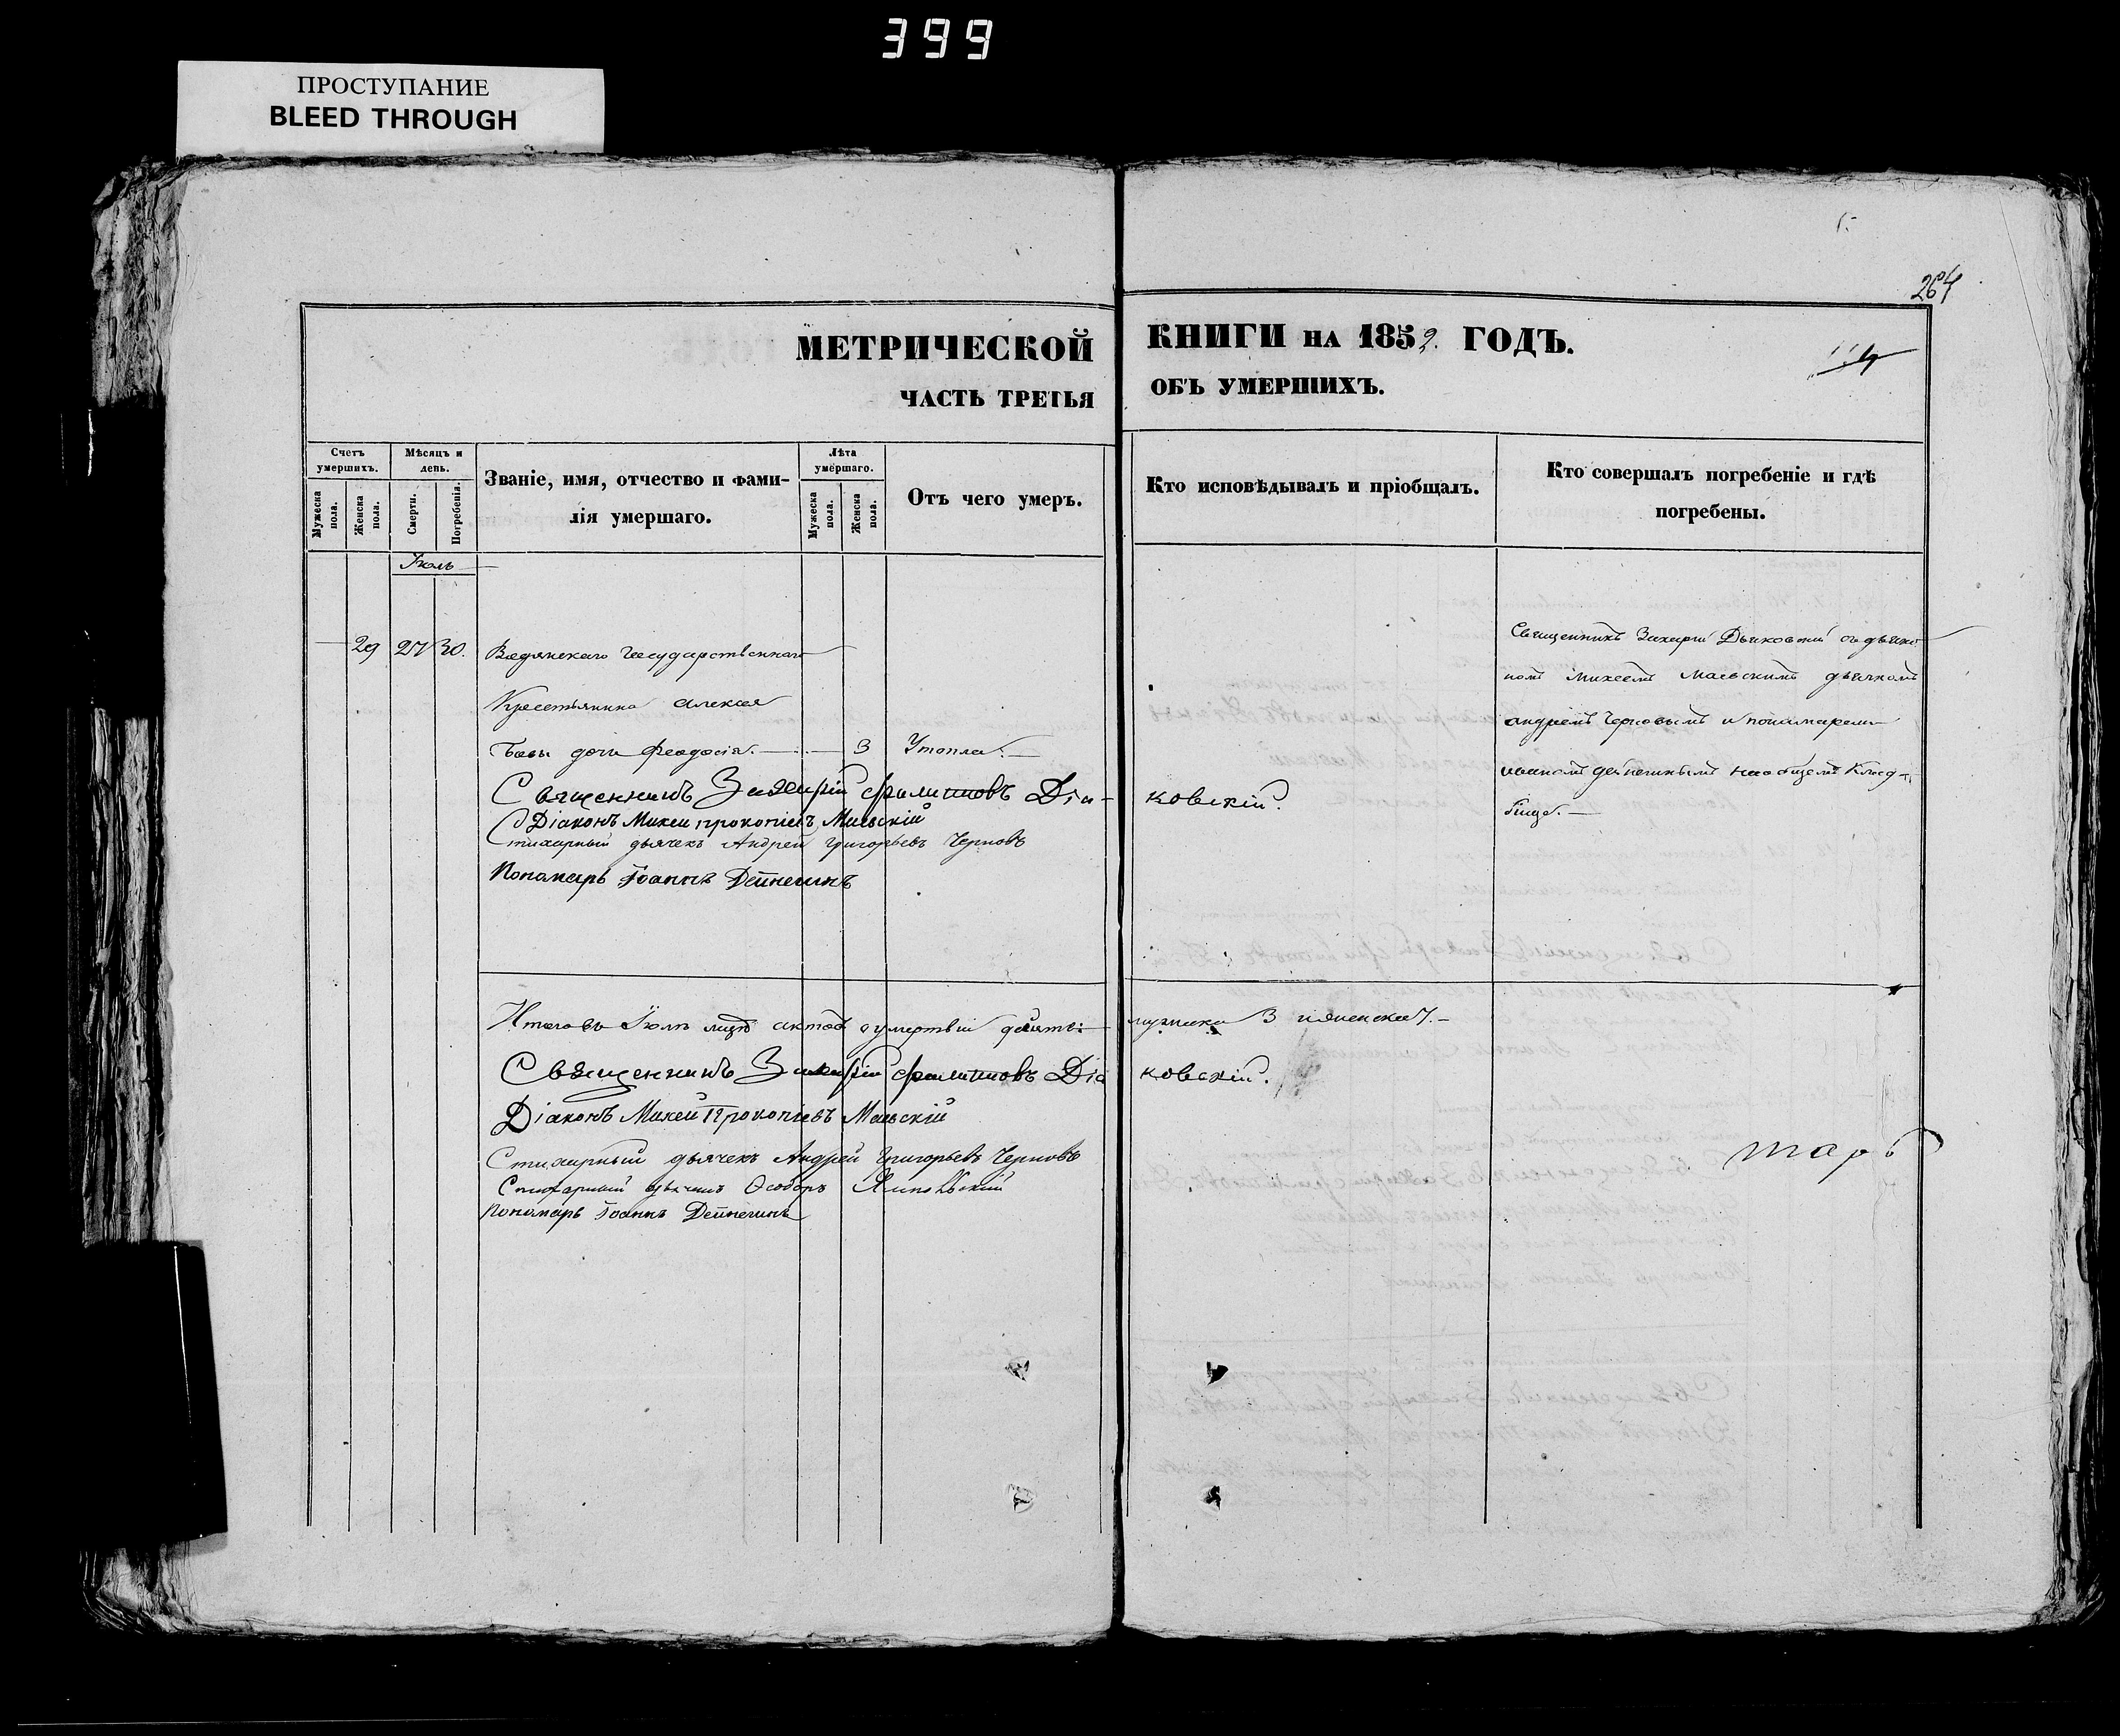 399
ПРОСТУПАНИЕ
BLEED THROUGH
264
МЕТРИЧЕСКОЙ КНИГИ НА 1852. ГОДЪ.
ЧАСТЬ ТРЕТЬЯ ОБЪ УМЕРШИХЪ.
Счетъ умершихъ.
Мужеска пола.
Женска пола.
Мѣсяцъ и день.
Смерти.
Погребенія.
Званіе, имя, отчество и фами-
лія умершаго.
Лѣта умершаго.
Мужеска пола.
Женска пола.
Отъ чего умеръ.
Кто исповѣдывалъ и пріобщалъ.
Кто совершалъ погребеніе и гдѣ
погребены.
Іюль
29 27 30.
Государственнаго
Крестьянина Алексея
дочь Феодосія. 3 Утопла.
Священникъ Захарій Дьяковскій съ діако-
номъ Михеемъ Маевскимъ дьячкомъ
Андреемъ Черновымъ и пономаремъ
Іоанномъ Дейнекинымъ на общемъ клад-
бище.
Священникъ Захарій Филиповъ Діа-ковскій.
Діаконъ Михей Прокопіевъ Маевскій
Стихарный дьячекъ Андрей Григорьевъ Черновъ
Пономарь Іоаннъ Дейнекинъ
Итого въ Іюлѣ умертвій десять: мужеска 3 и женска 7.
Священникъ Захарій Филиповъ Діаковскій.
Діаконъ Михей Прокопіевъ Маевскій
Стихарный дьячекъ Андрей Григорьевъ Черновъ
Стихарный дьячекъ Ѳеодоръ
Пономарь Іоаннъ Дейнекинъ
тарь